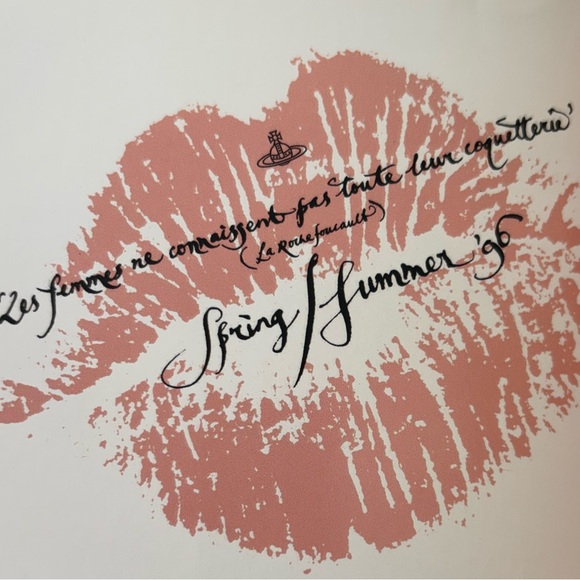 'Les femmes ne connaissent pas toute leur coquetterie'
(La Rochefoucault)
Spring/Summer '96